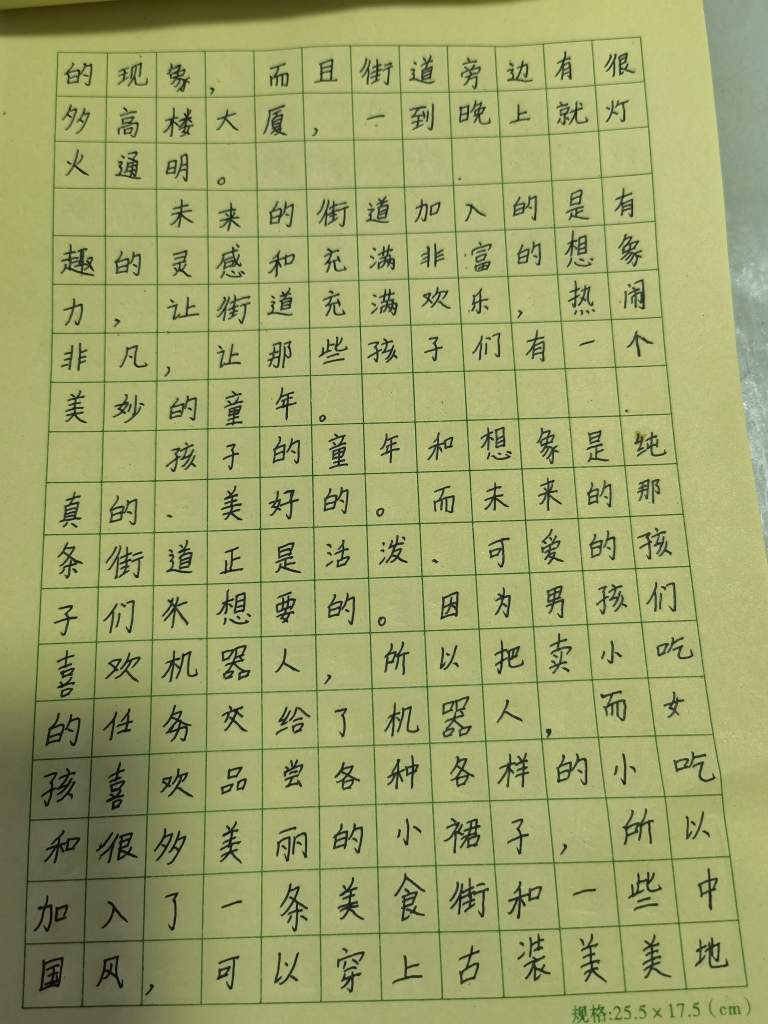 的现象，而且街道旁边有很
多高楼大厦，一到晚上就灯
火通明。
未来的街道加入的是有
趣的灵感和充满非富的想象
力，让街道充满欢乐，热闹
非凡，让那些孩子们有一个
美妙的童年。
孩子的童年和想象是纯
真的、美好的。而未来的那
条街道正是活泼、可爱的孩
子们想要的。因为男孩们
喜欢机器人，所以把卖小吃
的任务交给了机器人，而女
孩喜欢品尝各种各样的小吃
和很多美丽的小裙子，所以
加入了一条美食街和一些中
国风，可以穿上古装美美地
规格:25.5×17.5(cm)